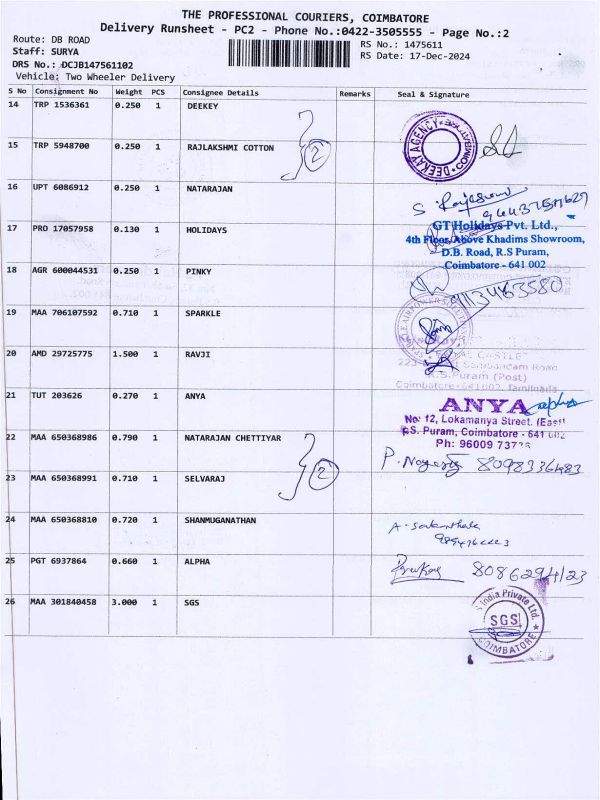 THE PROFESSIONAL COURIERS, COIMBATORE
Delivery Runsheet - PC2 - Phone No.:0422-3505555 - Page No.:2
Route: DB ROAD
RS No.: 1475611
Staff: SURYA
RS Date: 17-Dec-2024
DRS No.: DCJB147561102
Vehicle: Two Wheeler Delivery
S No Consignment No Weight PCS Consignee Details Remarks Seal & Signature
14 TRP 1536361 0.250 1 DEEKEY
DEEKAY AGENCY
15 TRP 5948700 0.250 1 RAJLAKSHMI COTTON
2
16 UPT 6086912 0.250 1 NATARAJAN
17 PRO 17057958 0.130 1 HOLIDAYS
GT Holidays Pvt. Ltd.,
4th Floor, Above Khadims Showroom,
D.B. Road, R.S Puram,
Coimbatore - 641 002
18 AGR 600044531 0.250 1 PINKY
9113463580
19 MAA 706107592 0.710 1 SPARKLE
20 AMD 29725775 1.500 1 RAVJI
CASTLE"
Road
R.S.Puram (Post)
Coimbatore-641002, Tamilnadu
21 TUT 203626 0.270 1 ANYA
ANYA
No: 12, Lokamanya Street, (East)
R.S. Puram, Coimbatore - 641 002
Ph: 96009
22 MAA 650368986 0.790 1 NATARAJAN CHETTIYAR
8098336483
23 MAA 650368991 0.710 1 SELVARAJ
2
24 MAA 650368810 0.720 1 SHANMUGANATHAN
25 PGT 6937864 0.660 1 ALPHA
8086294123
26 MAA 301840458 3.000 1 SGS
India Private Ltd.
SGS
COIMBATORE